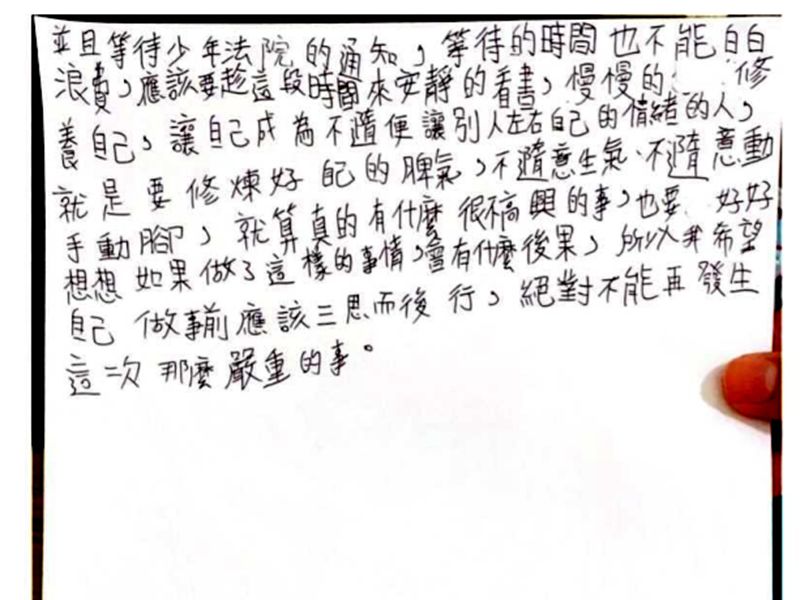 並且等待少年法院的通知，等待的時間也不能白白
浪費，應該要趁這段時間來安靜的看書，慢慢的修
養自己，讓自己成為不隨便讓別人左右自己的情緒的人，
就是要修煉好自己的脾氣，不隨意生氣、不隨意動
手動腳，就算真的有什麼很不高興的事，也要好好
想想如果做了這樣的事情，會有什麼後果，所以我希望
自己做事前應該三思而後行，絕對不能再發生
這次那麼嚴重的事。